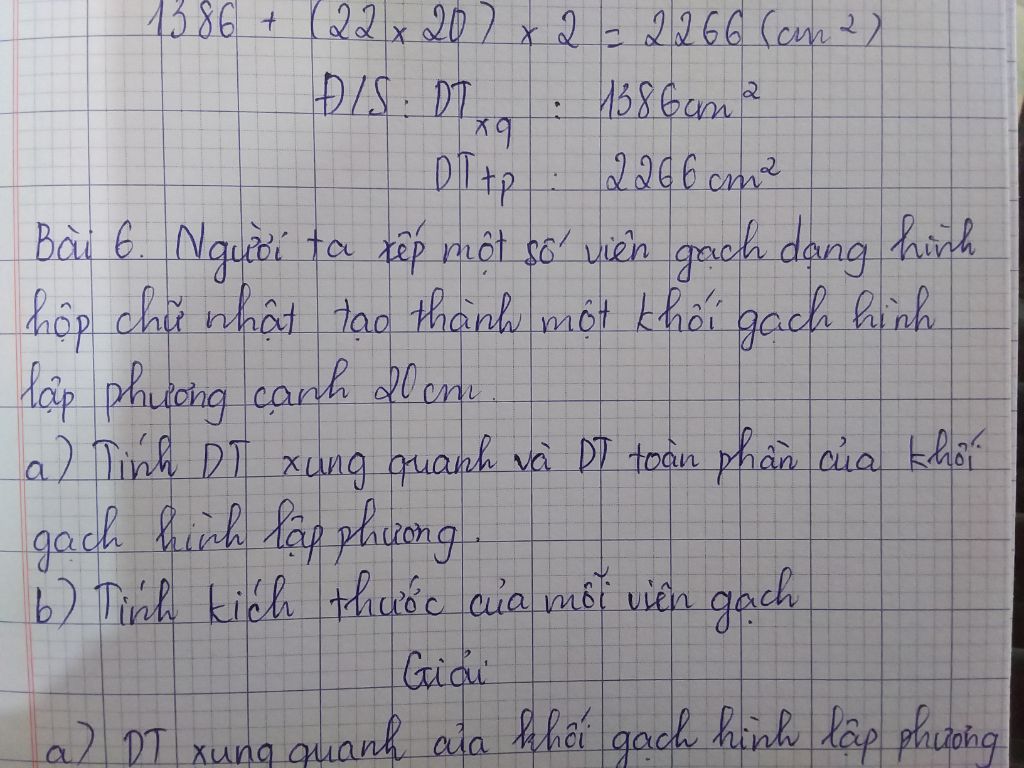 1386 + (22 x 20) x 2 = 2266 (cm²)
Đ/S: DTxq : 1386cm²
DTtp : 2266cm²
Bài 6. Người ta xếp một số viên gạch dạng hình
hộp chữ nhật tạo thành một khối gạch hình
lập phương cạnh 20cm.
a) Tính DT xung quanh và DT toàn phần của khối
gạch hình lập phương.
b) Tính kích thước của mỗi viên gạch
Giải
a) DT xung quanh của khối gạch hình lập phương